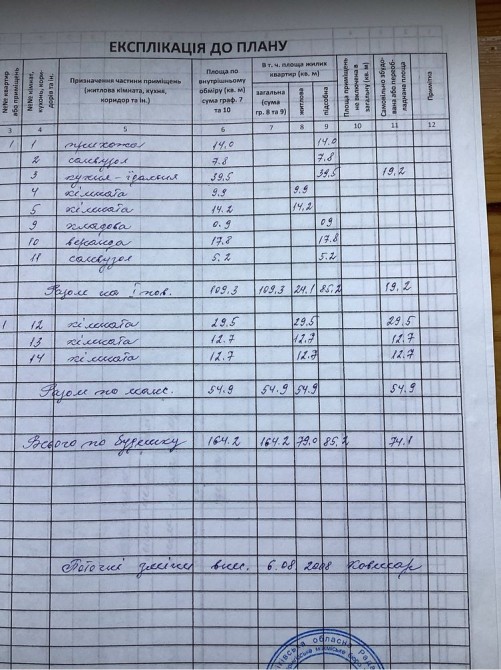 ЕКСПЛІКАЦІЯ ДО ПЛАНУ
№№ квартир або приміщень
№№ кімнат, кухонь, коридорів та ін.
Призначення частини приміщень (житлова кімната, кухня, коридор та ін.)
Площа по внутрішньому обміру (кв. м) сума граф. 7 та 10
В т. ч. площа жилих квартир (кв. м)
загальна (сума гр. 8 та 9)
житлова
підсобна
Площа приміщень не включена в загальну (кв. м)
Самовільно збудована або переобладнана площа
Примітка
3 4 5 6 7 8 9 10 11 12
1 1 прихожа 14.0 14.0
2 санвузол 7.8 7.8
3 кухня – їдальня 39,5 39,5 19,2
4 кімната 9.9 9.9
5 кімната 14.2 14,2
9 кладова 0.9 09
10 веранда 17.8 17.8
11 санвузол 5.2 5.2
Разом по І пов. 109.3 109.3 24.1 85,2 19,2
1 12 кімната 29.5 29.5 29.5
13 кімната 12.7 12.7 12.7
14 кімната 12.7 12.7 12.7
Разом по манс. 54.9 54.9 54.9 54.9
Всього по будинку 164.2 164.2 79.0 85,2 74.1
Поточні зміни внес. 6.08 2008